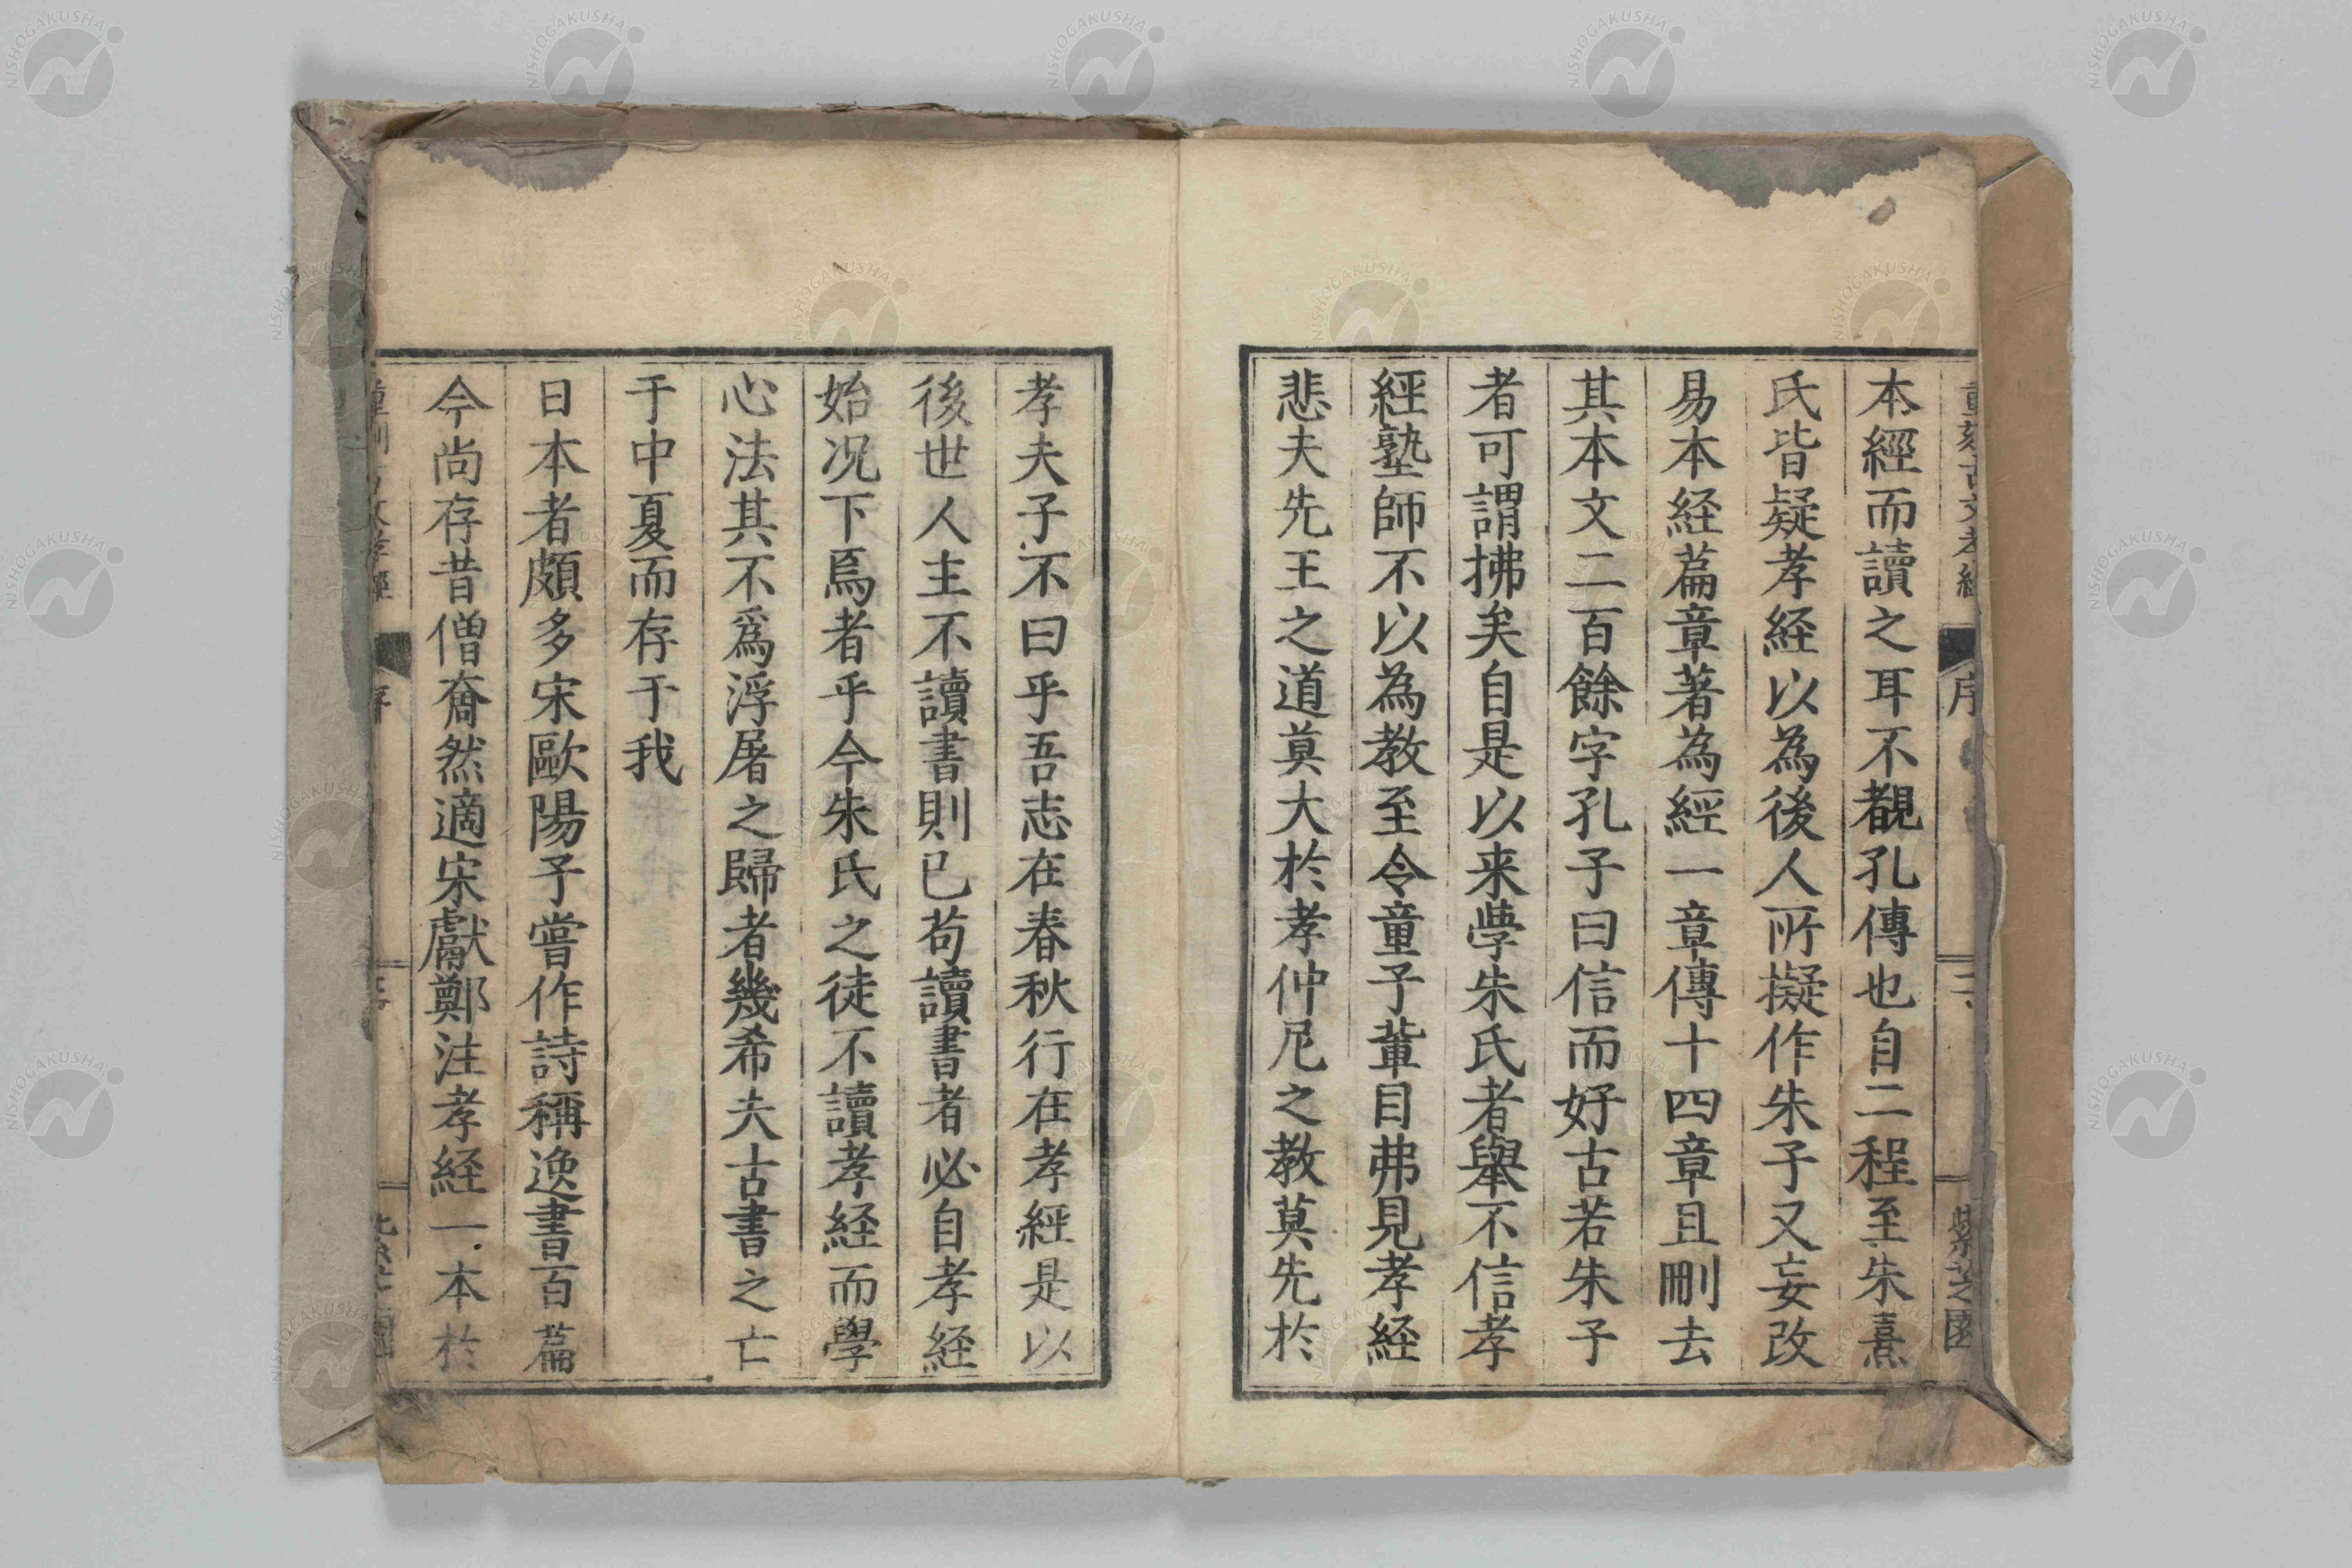 本經而讀之耳不覩孔傳也自二程至朱熹
氏皆疑孝経以為後人所擬作朱子又妄改
易本経篇章著為經一章傳十四章且刪去
其本文二百餘字孔子曰信而好古若朱子
者可謂拂矣自是以来學朱氏者舉不信孝
經塾師不以為教至令童子軰目弗見孝経
悲夫先王之道莫大於孝仲尼之教莫先於
孝夫子不曰乎吾志在春秋行在孝經是以
後世人主不讀書則已苟讀書者必自孝経
始况下焉者乎今朱氏之徒不讀孝経而學
心法其不爲浮屠之歸者幾希夫古書之亡
于中夏而存于我
日本者頗多宋歐陽子嘗作詩稱逸書百篇
今尚存昔僧奝然適宋獻鄭注孝経一本於
序
紫芝園
NISHOGAKUSHA